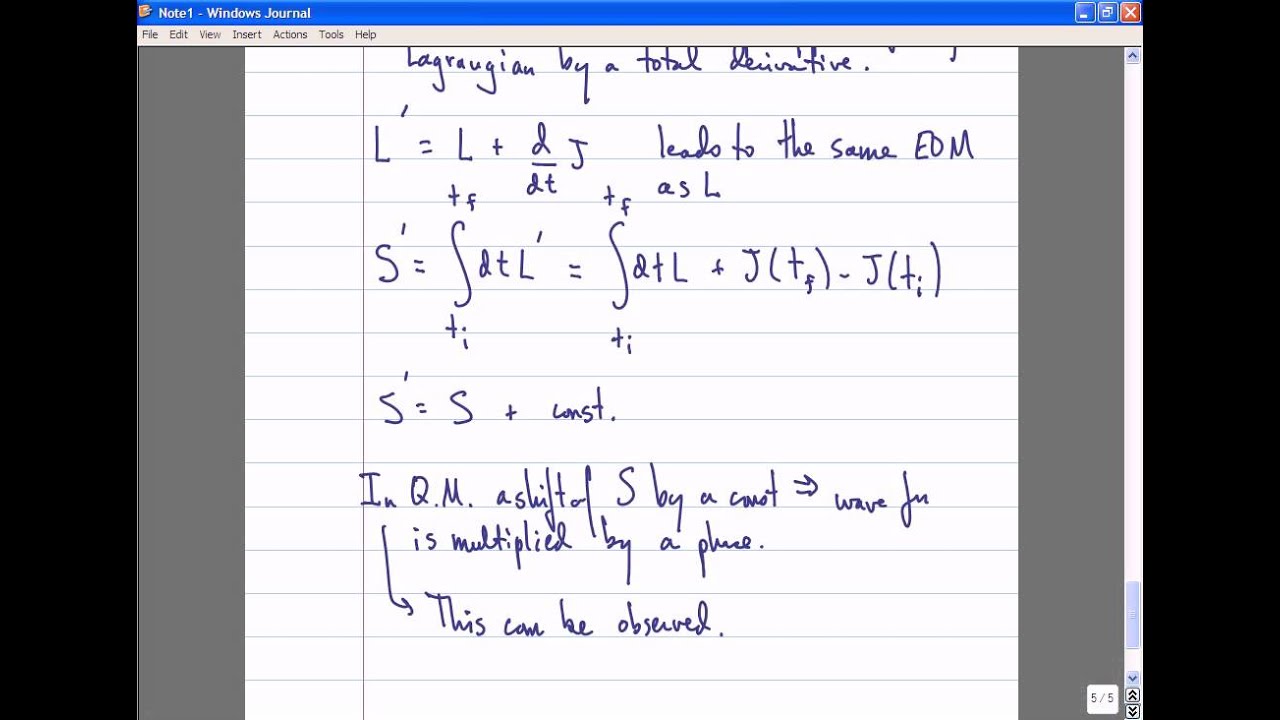 Note1 - Windows Journal
File Edit View Insert Actions Tools Help
Lagrangian by a total derivative.
L' = L + d/dt J leads to the same EOM
as L
S' = ∫_{t_i}^{t_f} dt L' = ∫_{t_i}^{t_f} dt L + J(t_f) - J(t_i)
S' = S + const.
In Q.M. a shift of S by a const ⇒ wave fn
is multiplied by a phase.
↳ This can be observed.
5 / 5